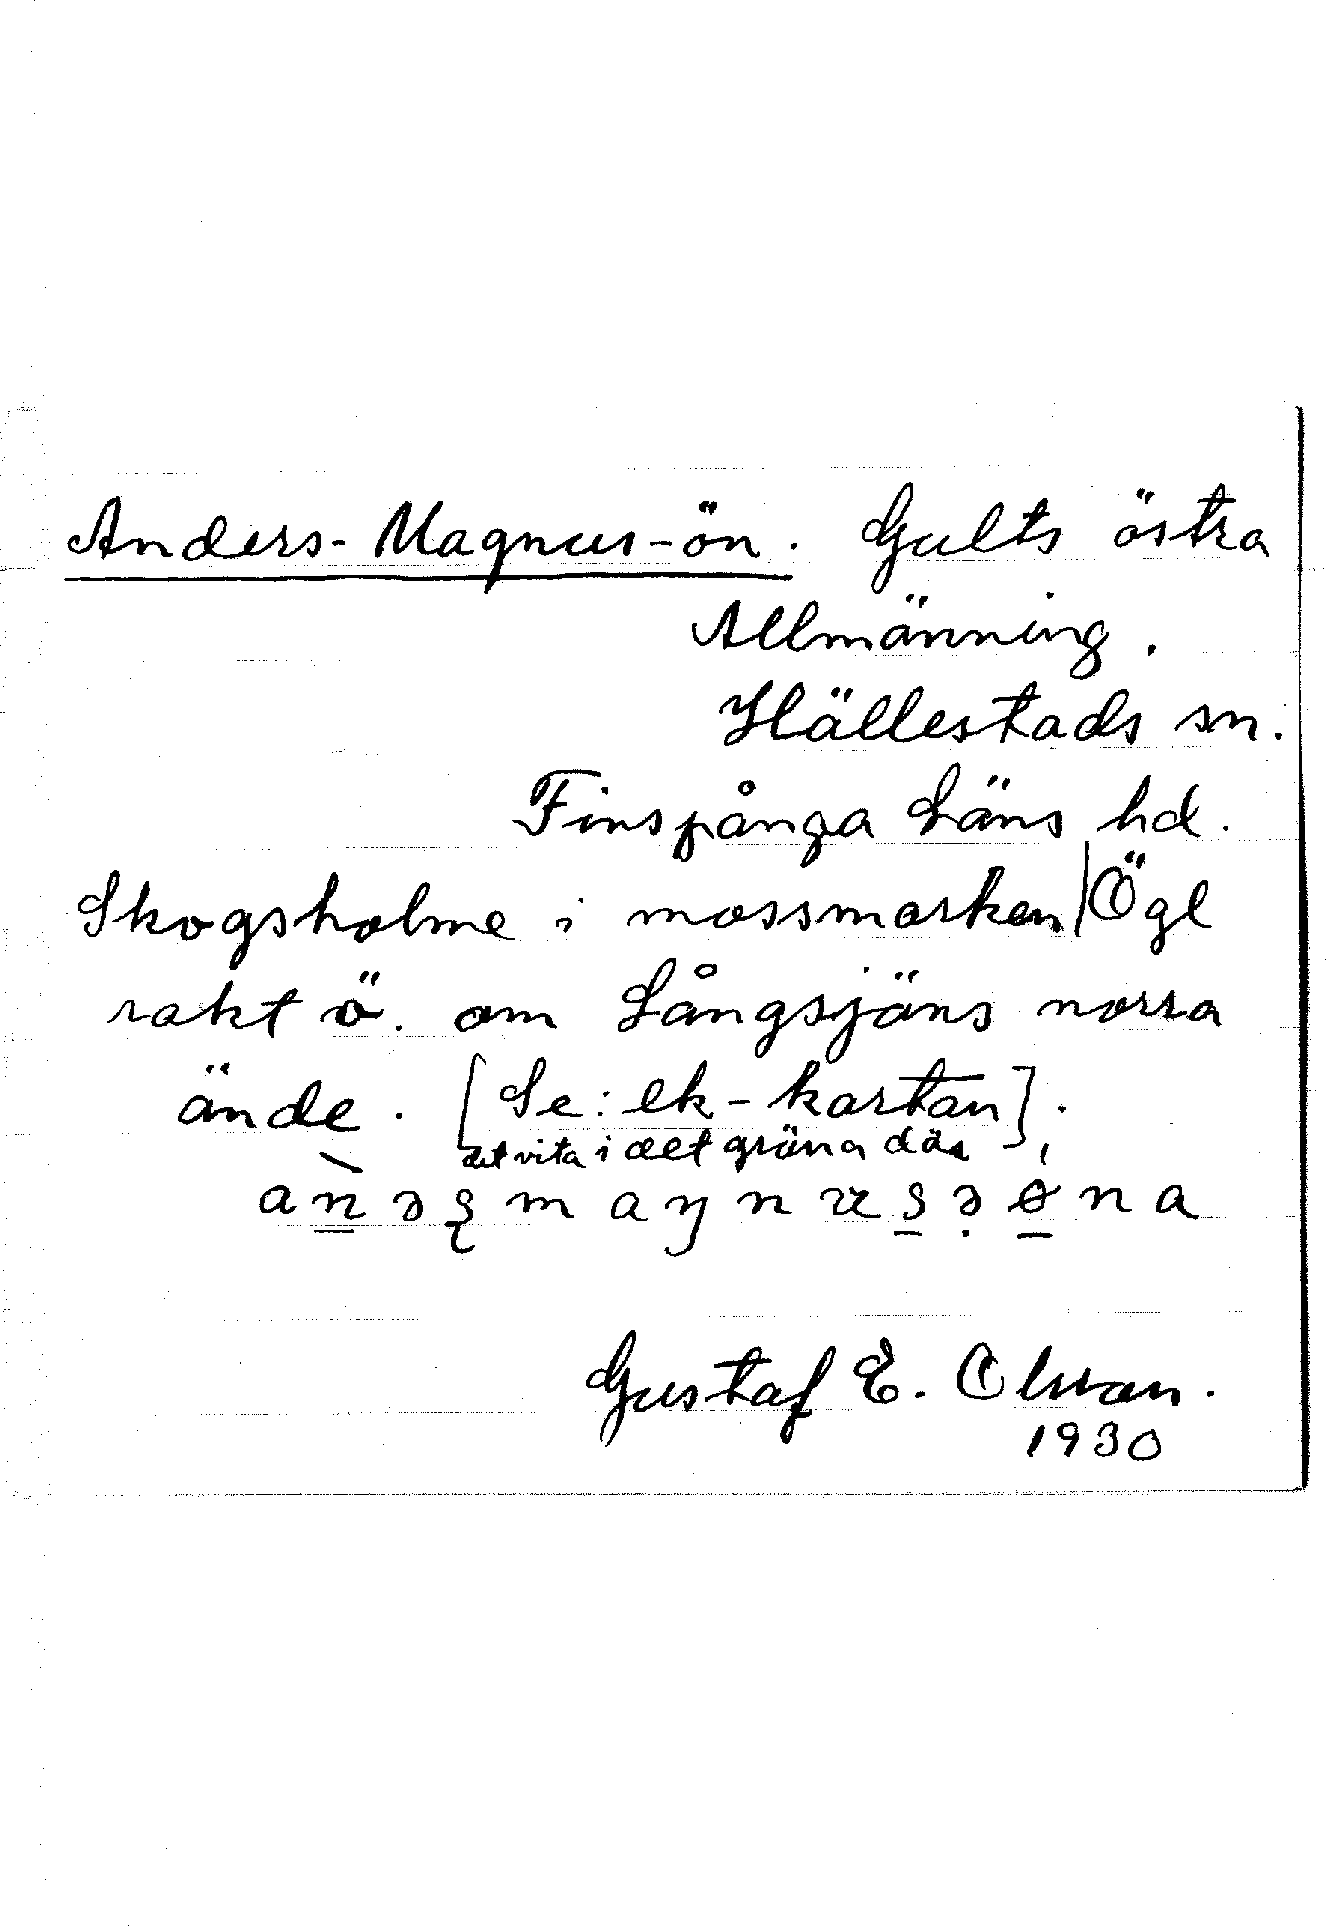 Anders-Magnus-ön. Gults östra
Allmänning.
Hällestads sn.
Finspånga Läns hd.
Skogsholme i mossmarken | Ögl
rakt ö. om Långsjöns norra
ände. [Se: ek-kartan].
det vita i det gröna där
Gustaf E. Olsson.
1930